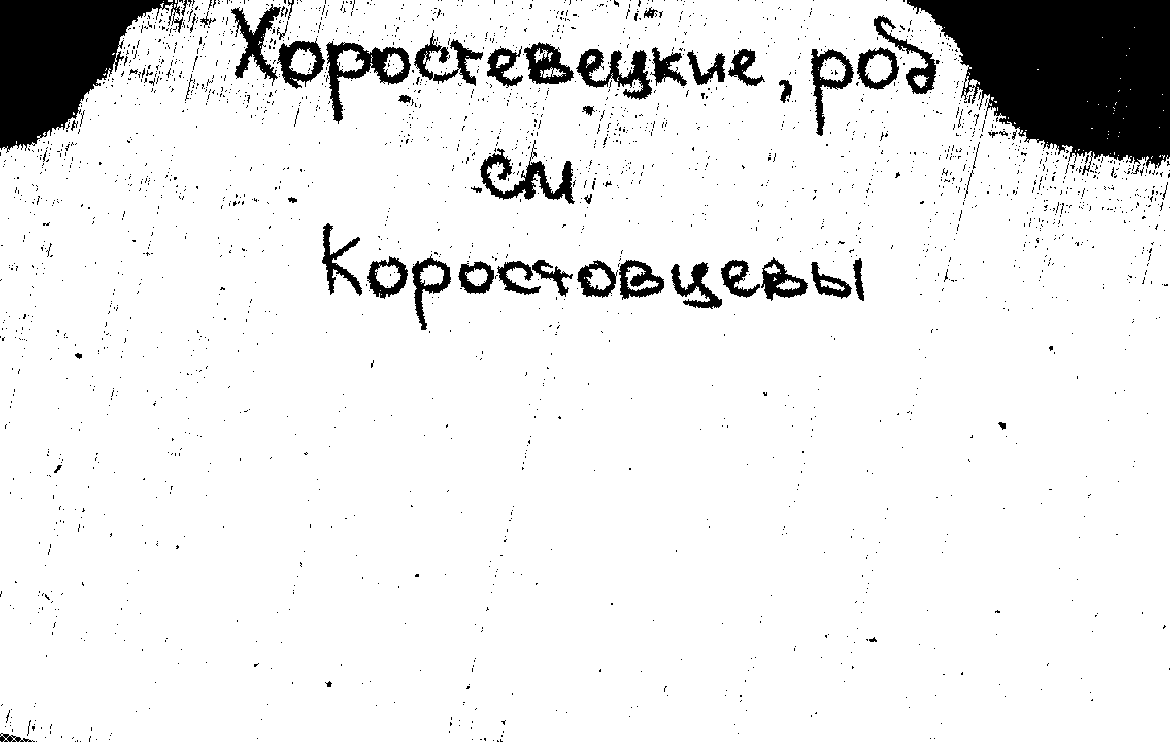 Хоростевецкие, род
см
Коростовцевы